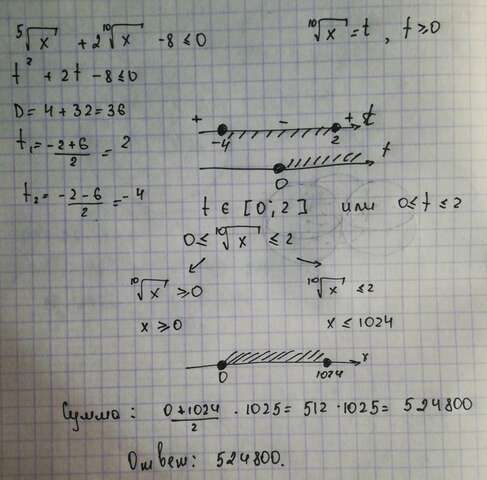 ⁵√x + 2 ¹⁰√x - 8 ≤ 0
¹⁰√x = t , t ≥ 0
t² + 2t - 8 ≤ 0
D = 4 + 32 = 36
t₁ = (-2+6)/2 = 2
+ - + t
-4 2
t
0
t₂ = (-2-6)/2 = -4
t ∈ [0; 2] или 0 ≤ t ≤ 2
0 ≤ ¹⁰√x ≤ 2
¹⁰√x ≥ 0 ¹⁰√x ≤ 2
x ≥ 0 x ≤ 1024
x
0 1024
Сумма: (0+1024)/2 · 1025 = 512 · 1025 = 524800
Ответ: 524800.